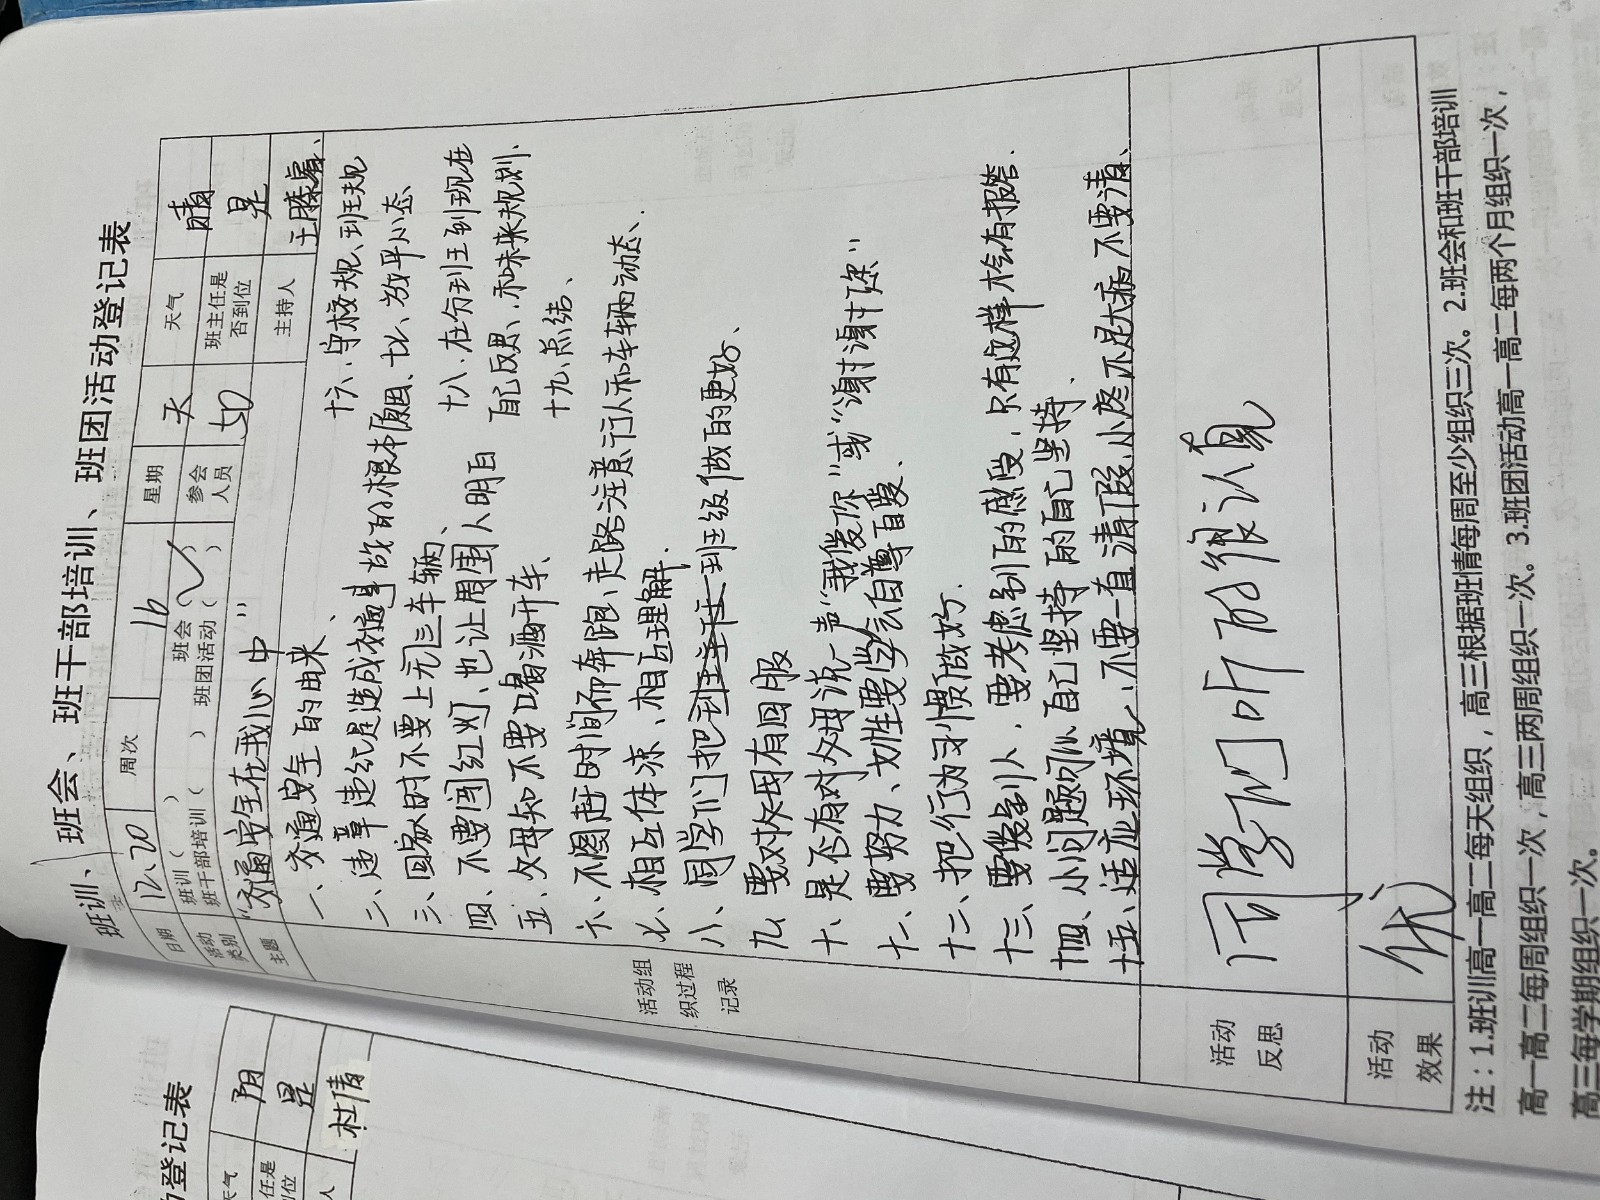 班训、班会、班干部培训、班团活动登记表
日期 12.20 周次 16 星期 天 天气 晴
活动类别 班训( ) 班会(✓) 班干部培训( ) 班团活动( ) 参会人员 50 班主任是否到位 是
主题 "交通安全在我心中" 主持人
活动组织过程记录
一、交通安全的由来、
二、违章违纪是造成交通事故的根本原因、
三、回家时不要上无三车辆、
四、不要闯红灯、也让周围人明白
五、父母知不要喝酒开车、
六、不图赶时间而奔跑、走路注意行人和车辆动态、
七、相互体凉、相互理解.
八、同学们把班级做的更好、
九、要对父母有回报
十、是否有对父母说一声"我爱你"或"谢谢你"
十一、要努力、女性要学会自尊自爱、
十二、把行为习惯放好.
十三、要做别人,要考虑别的感受,只有这样才会有报答.
十四、小问题可以自己坚持的自己坚持.
十五、适应环境、不要一直请假、小疼不是大病不要请、
十六、守校规、到班规
七、放平心态
十八、在匀到王到现在
自己反思、和味来规划.
十九、点结、
活动反思 同学们听的很认真
活动效果 优
注：1.班训高一高二每天组织，高三根据班情每周至少组织三次。2.班会和班干部培训
高一高二每周组织一次，高三两周组织一次。3.班团活动高一高二每两个月组织一次，
高三每学期组织一次。
动登记表
天气 阴
任是 位 是
人 杜倩